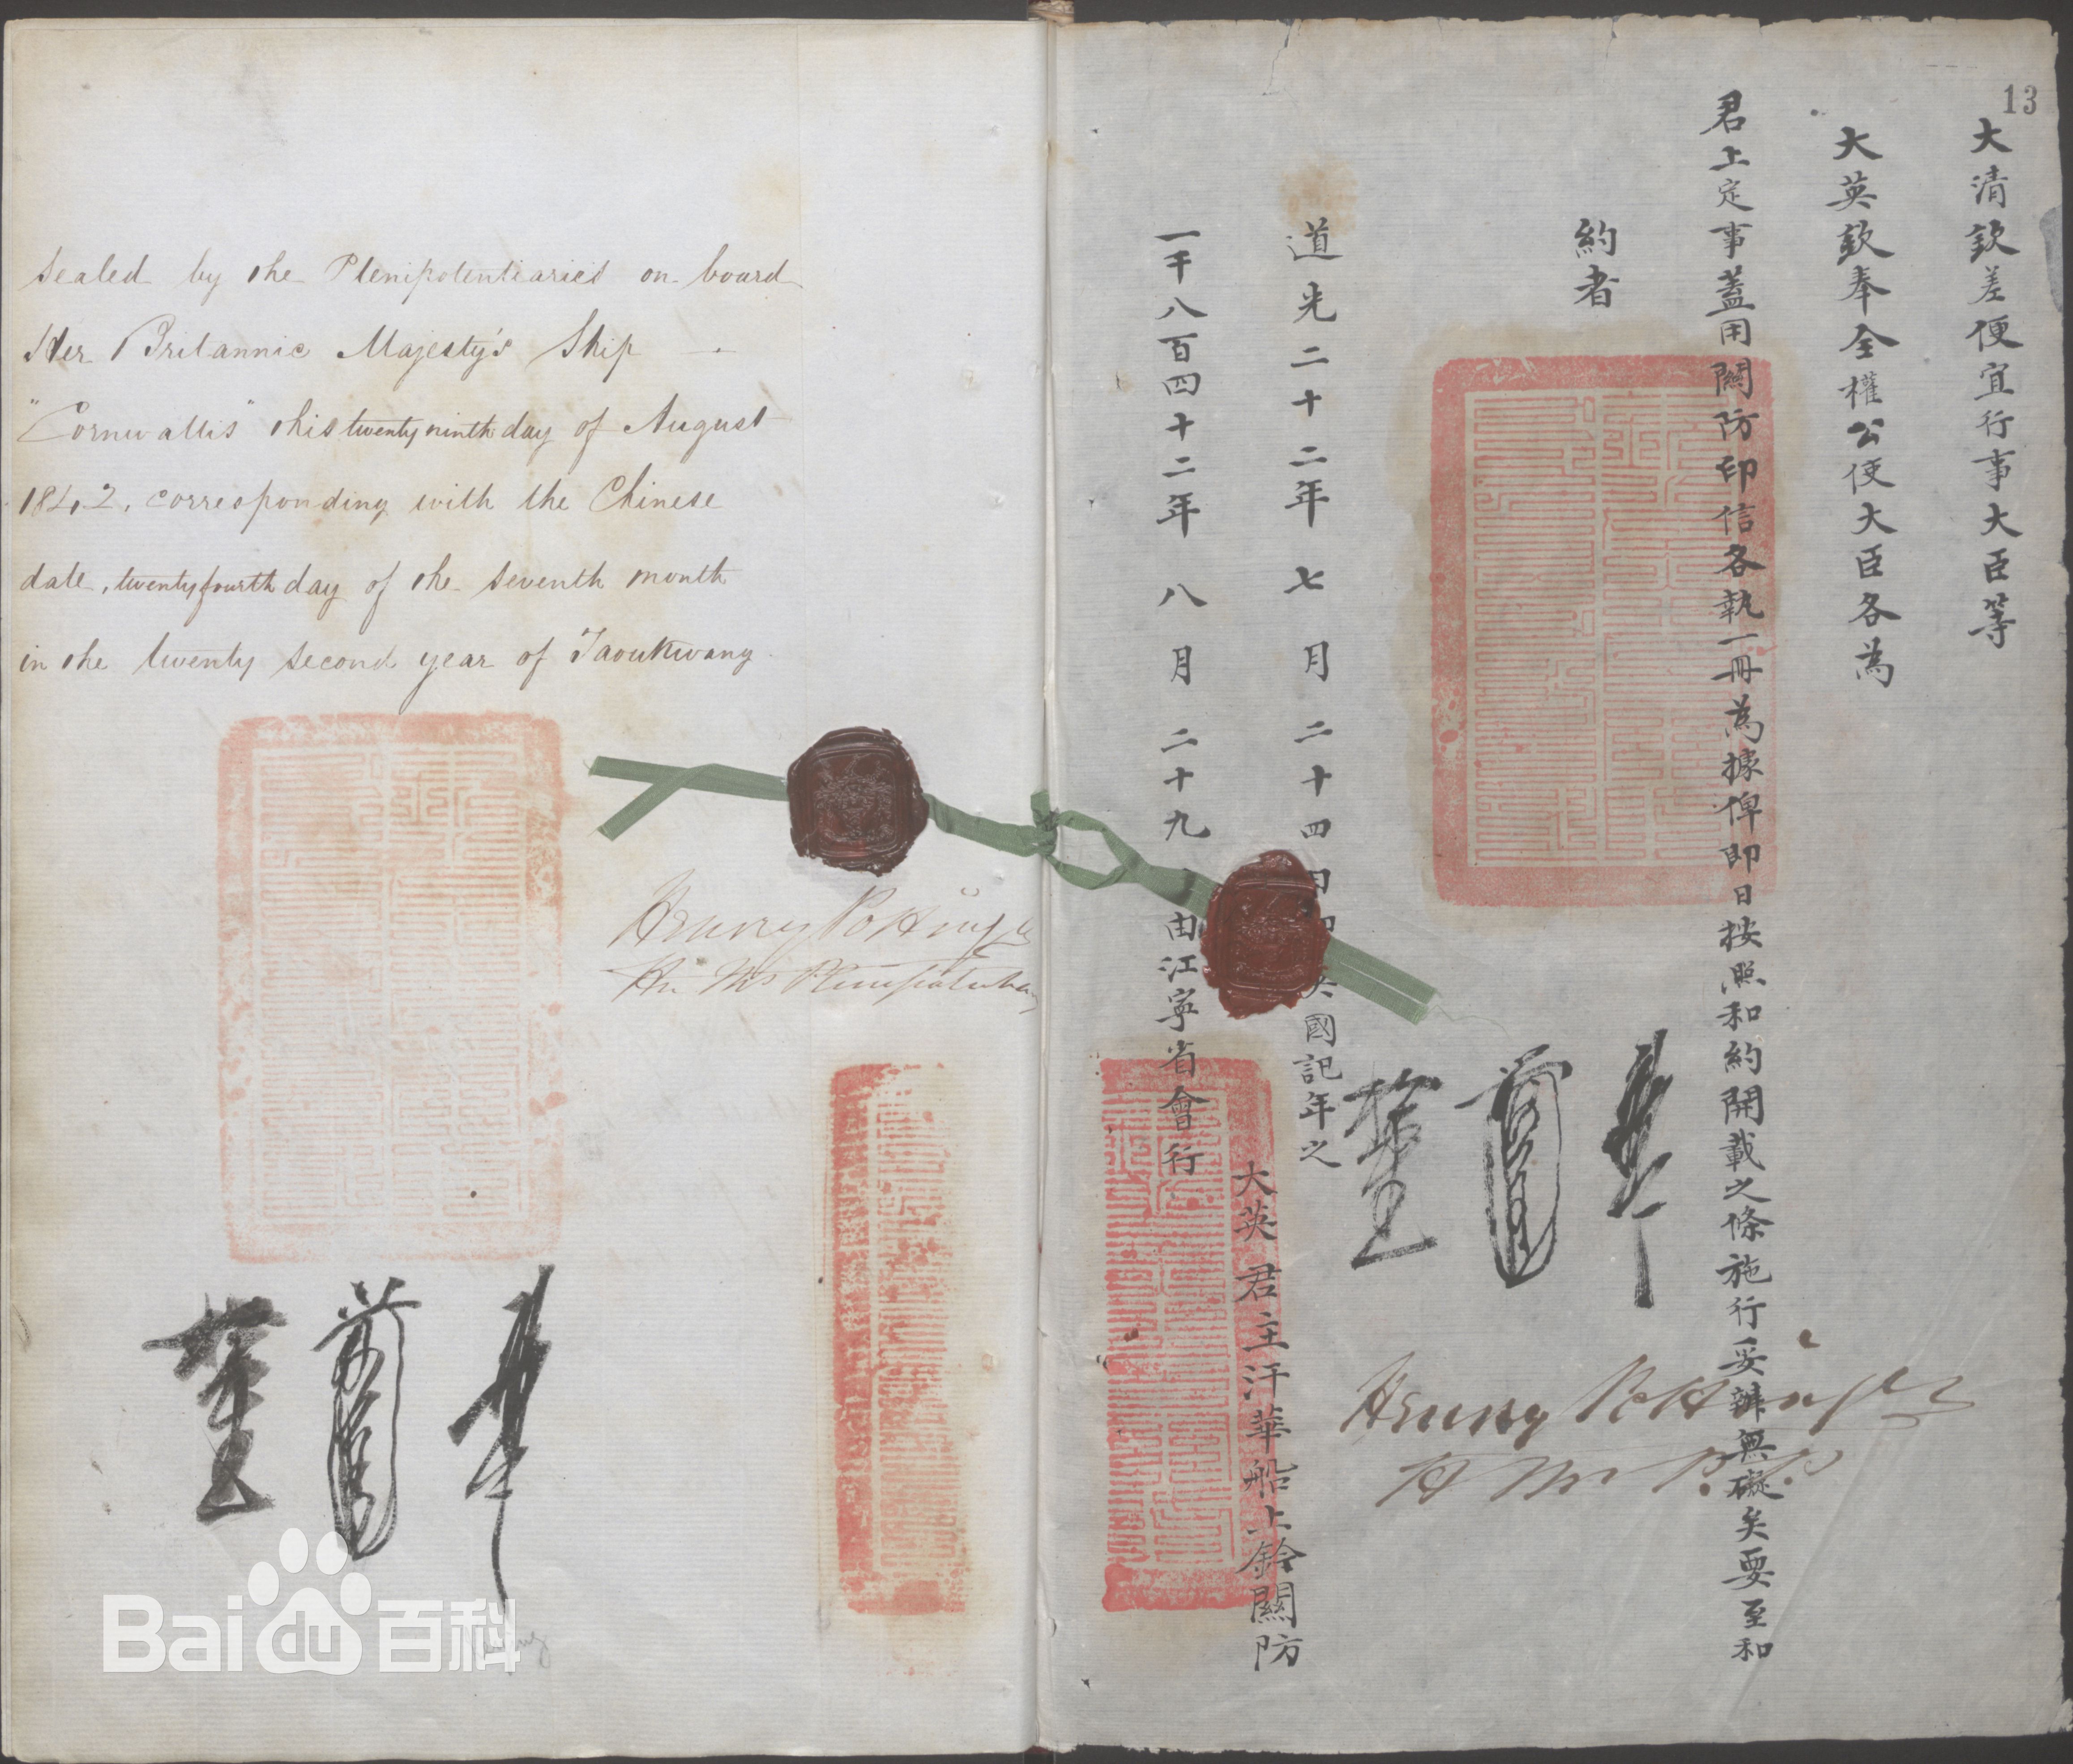 sealed by the Plenipotentiaries on board
Her Britannic Majesty's Ship
"Cornwallis" this twenty ninth day of August
1842, corresponding with the Chinese
date, twenty fourth day of the seventh month
in the twenty second year of Taoukwang
Henry Pottinger
Bai 百科
13
大清欽差便宜行事大臣等
大英欽奉全權公使大臣各為
君上定事蓋用關防印信各執一冊為據俾即日按照和約開載之條施行妥辦無礙矣要至和
約者
道光二十二年七月二十四日即英國記年之
一千八百四十二年八月二十九日由江寧省會行
大英君主汗華船上鈐關防
Henry Pottinger